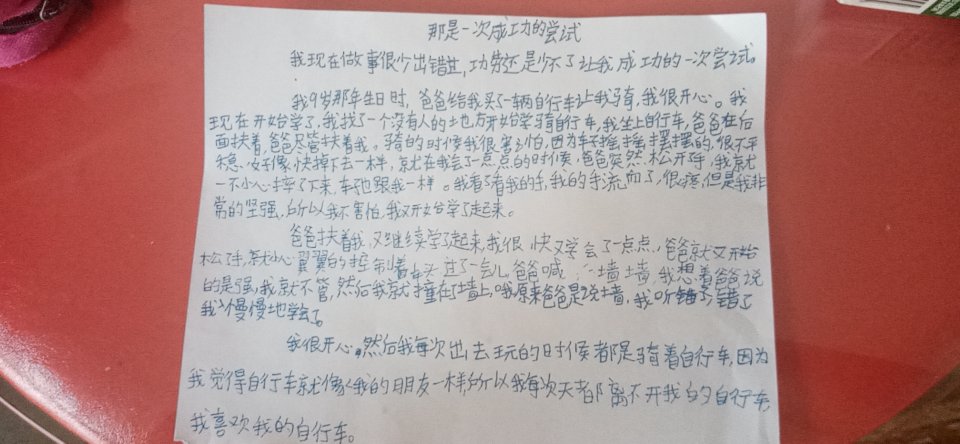 那是一次成功的尝试
我现在做事很少出错过,功劳还是少不了让我成功的一次尝试。
我9岁那年生日时,爸爸给我买了一辆自行车让我骑,我很开心。我
现在开始学了,我找了一个没有人的地方开始学骑自行车,我坐上自行车,爸爸在后
面扶着,爸爸尽管扶着我。骑的时候我很害怕,因为车子摇摇摆摆的,很不平
稳,好像快掉下去一样,就在我会了一点点的时候,爸爸突然松开了手,我就
一不小心摔了下来,车也跟我一样。我看了看我的手,我的手流血了,很疼,但是我非
常的坚强,所以我不害怕,我又开始学了起来。
爸爸扶着我,又继续学了起来,我很快又学会了一点点,爸爸就又开始
松了手,我就小心翼翼的控制着车头,过了一会儿,爸爸喊:“墙墙,我想着爸爸说
的是强,我就不管,然后我就撞在了墙上,哦原来爸爸是说墙,我听错了,错了
我慢慢地学会了。
我很开心。然后我每次出去玩的时候都是骑着自行车,因为
我觉得自行车就像我的朋友一样,所以我每次天都离不开我的自行车,
我喜欢我的自行车。